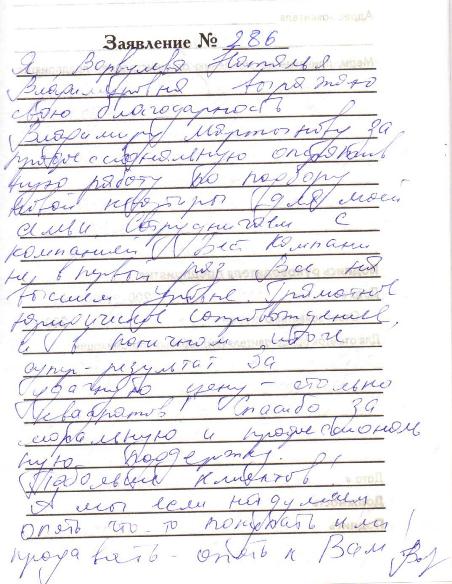 Заявление № 286
Я Варкулева Наталья
Владимировна выражаю
свою благодарность
Владимиру Мартынову за
профессиональную оператив
ную работу по подбору
новой квартиры для моей
семьи. Сотрудничаем с
компанией Бест Компани
не в первый раз. Все на
высшем уровне. Грамотное
юридическое сопровождение,
и в конечном итоге
супер-результат за
удачную цену - столько
квадратов! Спасибо за
моральную и профессиональ
ную поддержку.
Побольше клиентов!
А мы если надумаем
опять что-то покупать или
продавать - опять к Вам!